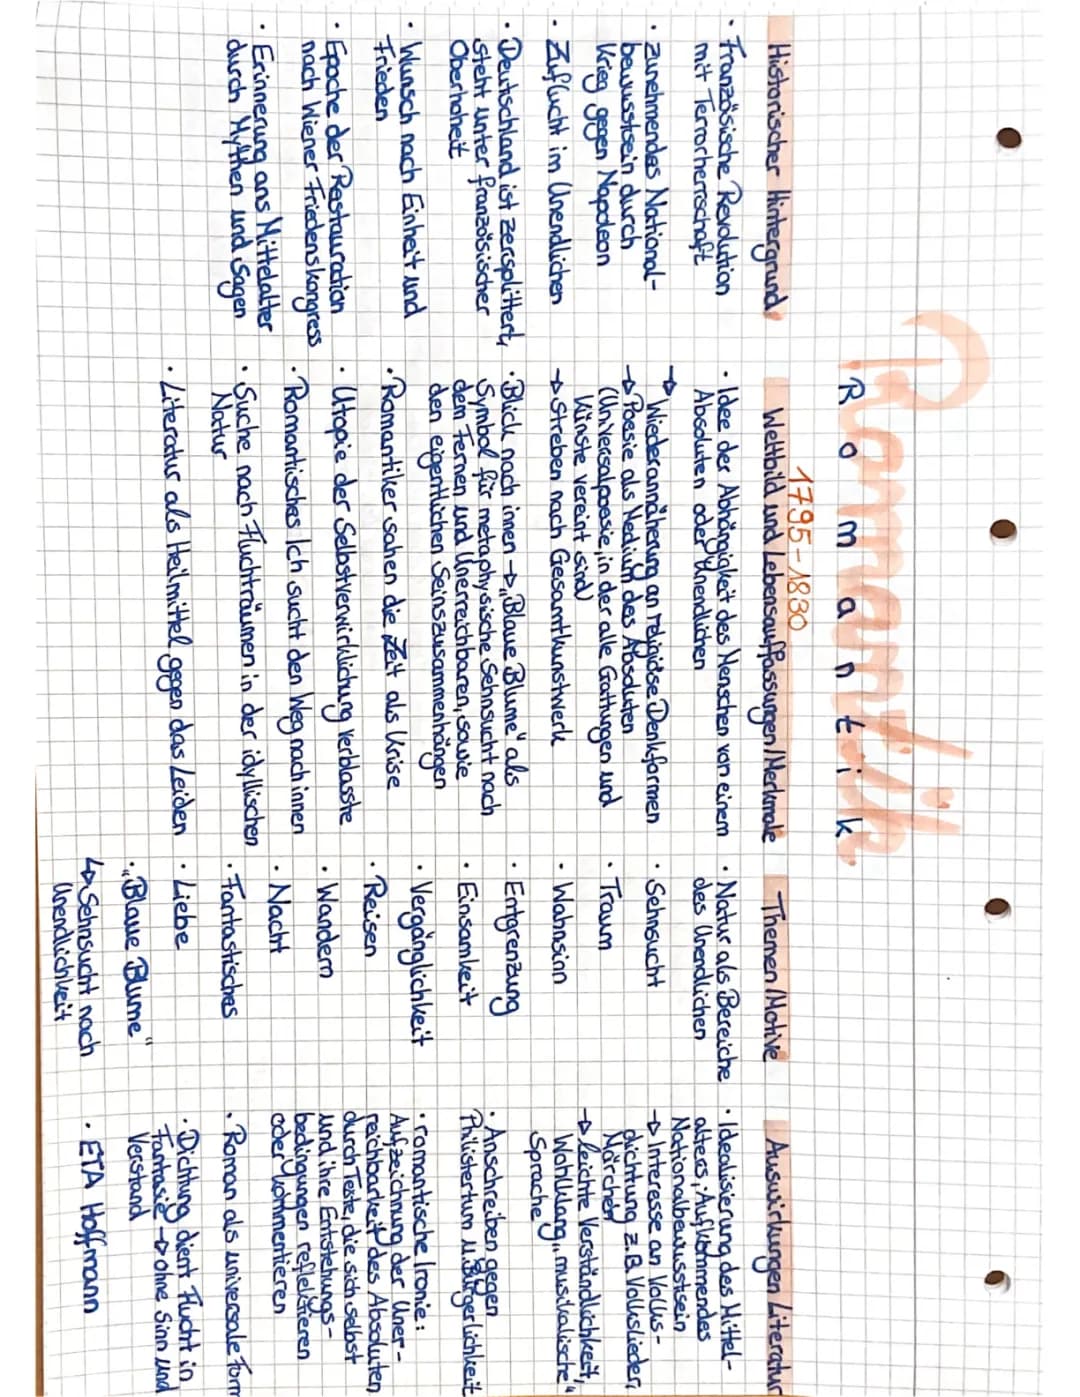 Romantik
Romantik
1795-1830
Historischer Hintergrund
· Französische Revolution
mit Terrorherrschaft
· zunehmendes National-
bewusstsein durch
Krieg gegen Napoleon
· Zuflucht im Unendlichen
· Deutschland ist zersplittert,
steht unter französischer
Oberhoheit
· Wunsch nach Einheit und
Frieden
· Epoche der Restauration
nach Wiener Friedenskongress
· Erinnerung ans Mittelalter
durch Mythen und Sagen
Weltbild und Lebensauffassungen/Merkmale
· Idee der Abhängigkeit des Menschen von einem
Absoluten oder Unendlichen
→ Wiederannäherung an religiöse Denkformen
→ Poesie als Medium des Absoluten
(Universalpoesie, in der alle Gattungen und
Künste vereint sind)
→ Streben nach Gesamtkunstwerk
· Blick nach innen → „Blaue Blume" als
Symbol für metaphysische Sehnsucht nach
dem Fernen und Unerreichbaren, sowie
den eigentlichen Seinszusammenhängen
· Romantiker sahen die Zeit als Krise
· Utopie der Selbstverwirklichung verblasste
· Romantisches Ich sucht den Weg nach innen
· Suche nach Fluchträumen in der idyllischen
Natur
· Literatur als Heilmittel gegen das Leiden
Themen/Motive
· Natur als Bereiche
des Unendlichen
· Sehnsucht
· Traum
· Wahnsinn
· Entgrenzung
· Einsamkeit
· Vergänglichkeit
· Reisen
· Wandern
· Nacht
· Fantastisches
· Liebe
· „Blaue Blume"
↳ Sehnsucht nach
Unendlichkeit
Auswirkungen Literatur
· Idealisierung des Mittel-
alters; Aufkommendes
Nationalbewusstsein
→ Interesse an Volks-
dichtung z.B. Volkslieder,
Märchen
→ leichte Verständlichkeit,
Wohlklang, „musikalische"
Sprache
· Anschreiben gegen
Philistertum u. Bürgerlichkeit
· romantische Ironie:
Aufzeichnung der Uner-
reichbarkeit des Absoluten,
durch Texte, die sich selbst
und ihre Entstehungs-
bedingungen reflektieren
oder kommentieren
· Roman als universale Form
· Dichtung dient Flucht in
Fantasie → ohne Sinn und
Verstand
· ETA Hoffmann